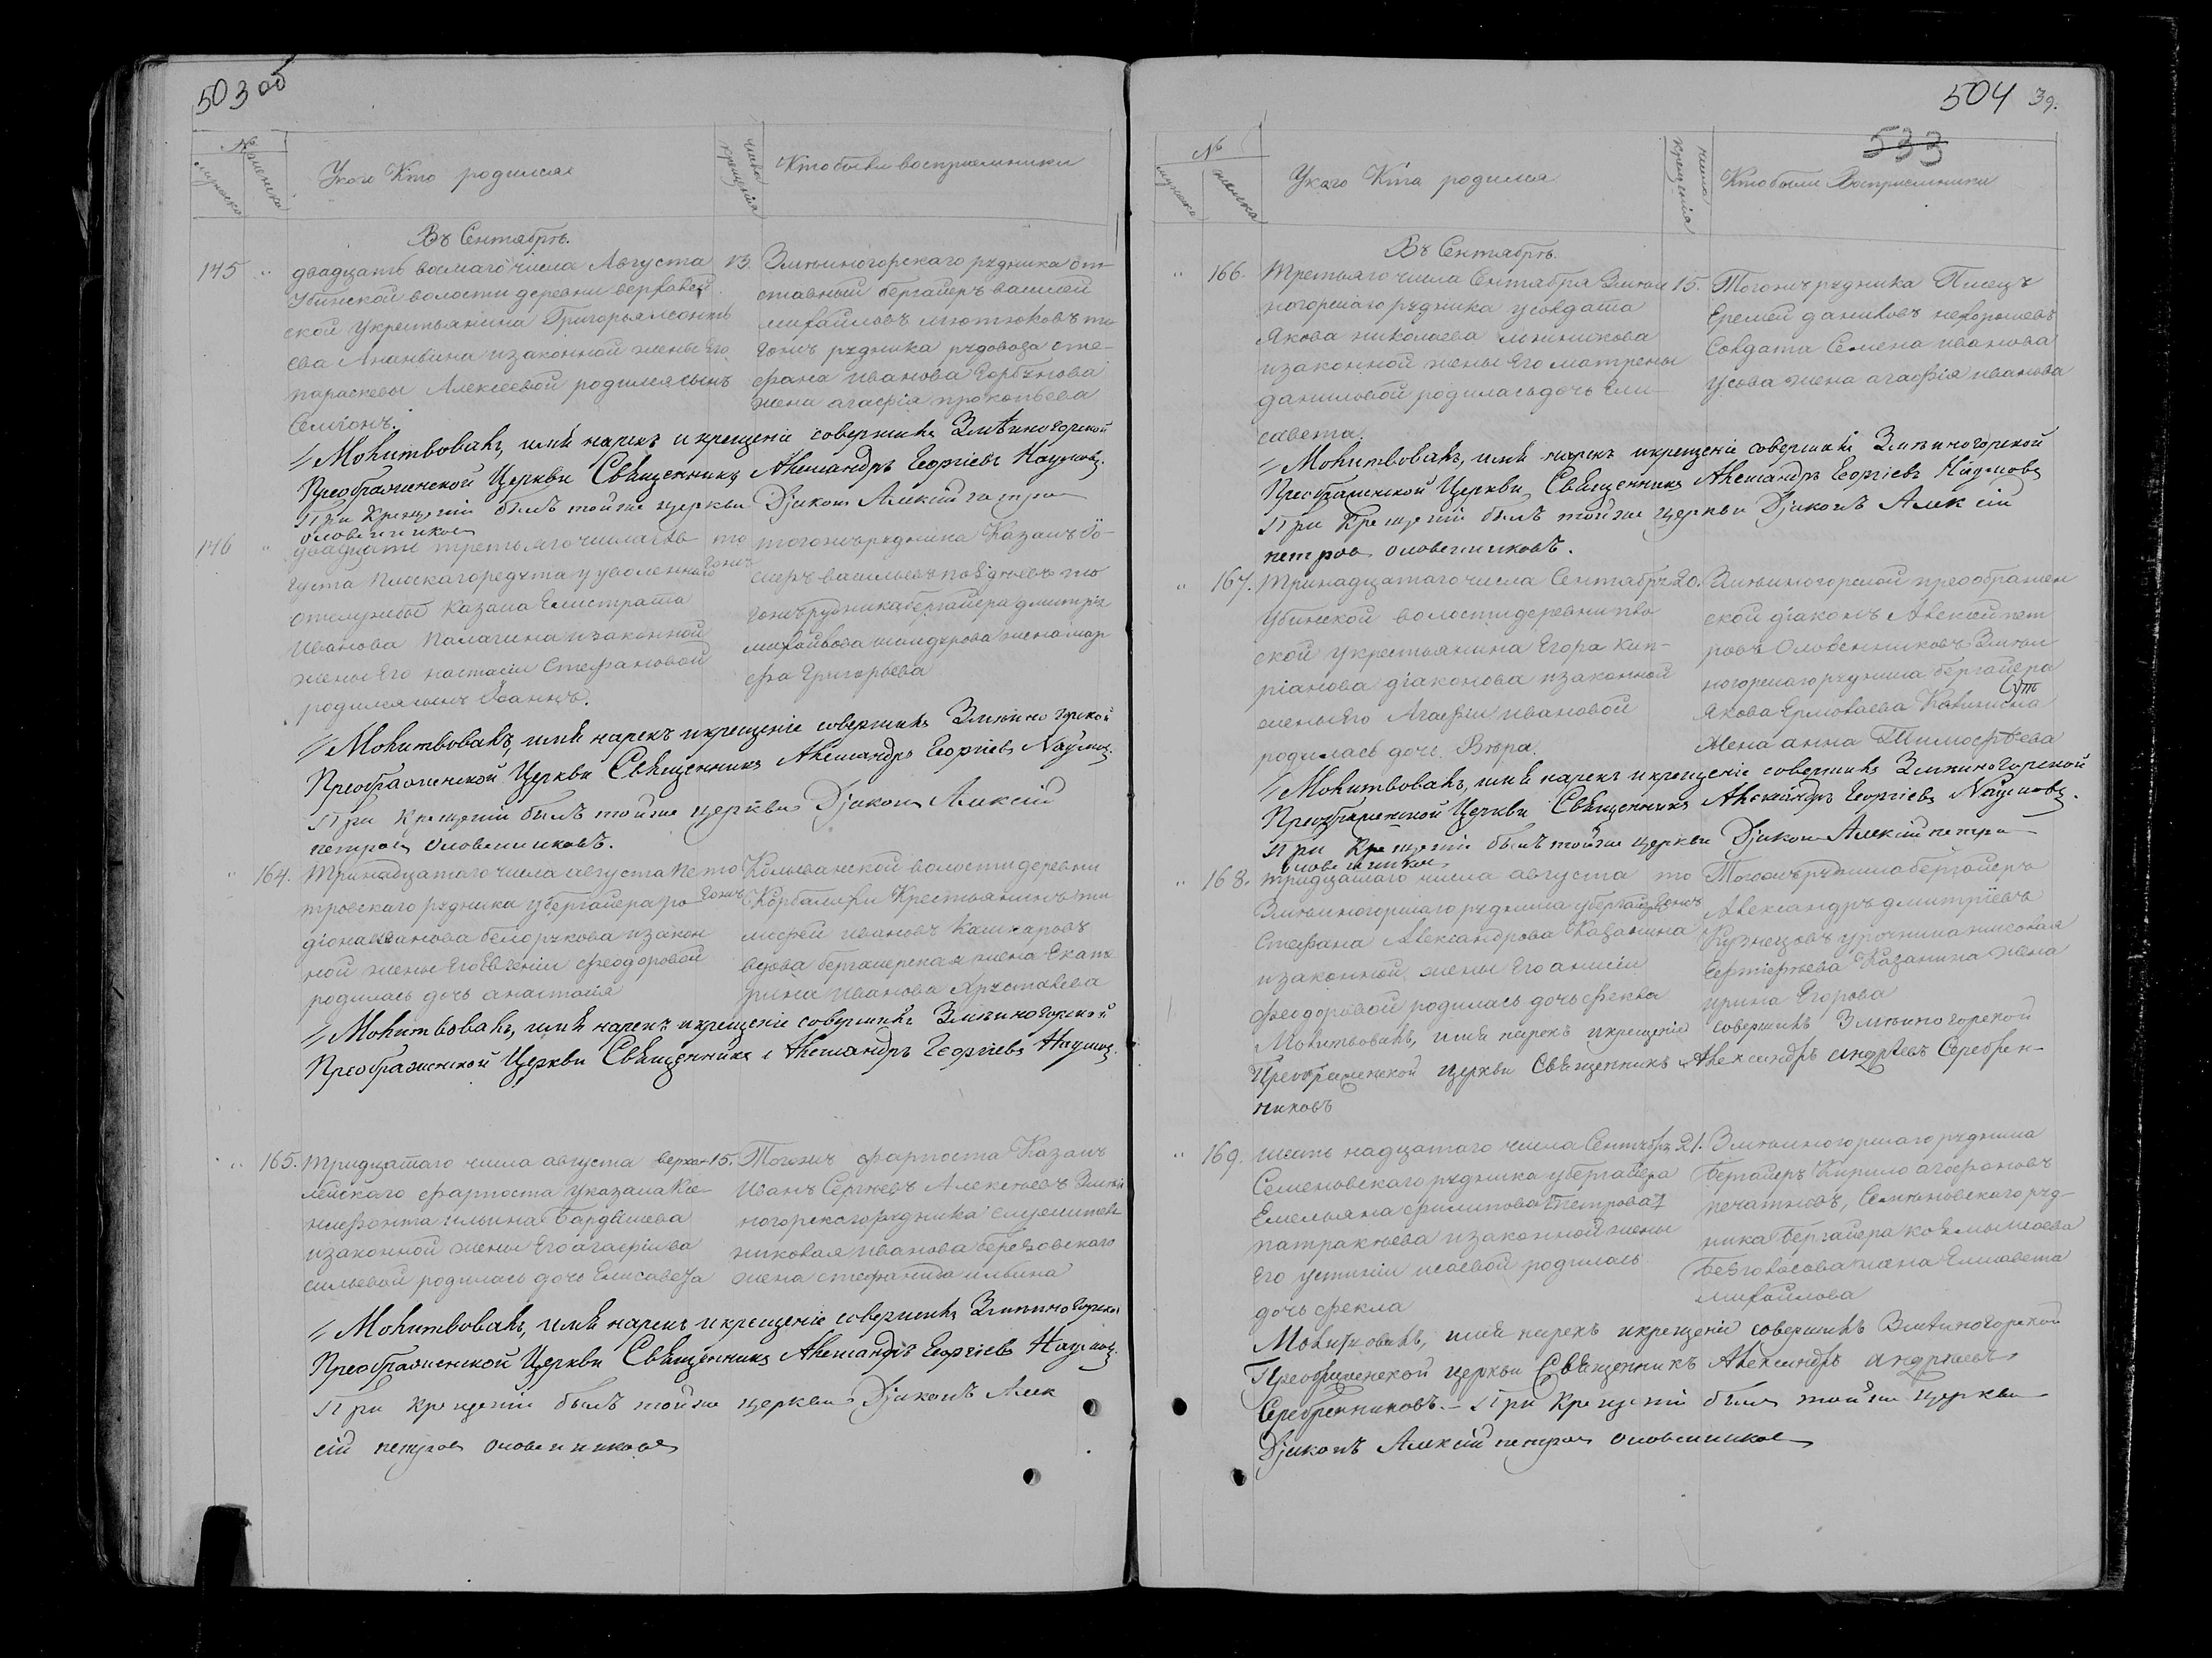 503 об
№
мужеска
женска
Укого Кто родился
число
крещенія
Кто были восприемники
Въ Сентябрѣ.
145 " двадцать восмаго числа Августа
Убинской волости деревни
ской Укрестьянина Григорья Леонть
ева Ананьина изаконной жены Его
параскевы Алексеевой родился сынъ
Симіонъ.
13. Змѣиногорскаго рудника от-
ставный бергайеръ василей
михайловъ то
гожъ рудника рудовоза сте-
фана Иванова Горбунова
жена агафія прокопьева
Молитвовалъ, имя нарекъ и крещеніе совершилъ Змѣиногорской
Преображенской Церкви Священникъ Александръ Георгіевъ Наумовъ.
При Крещеніи былъ тойже церкви Дjаконъ Алексій петров
оловенников
146 " двадцать третьяго числа Ав
густа Плоскаго редута у уволеннаго
отслужбы Казака Елистрата
Иванова Палагина изаконной
жены Его настасіи Стефановой
родился сынъ Іоаннъ.
то
гожъ
тогожъ рудника Казакъ
васильевъ то
гожъ рудника бергайера дмитрія
михайлова жена мар
фа Григорьева
Молитвовалъ, имя нарекъ и крещеніе совершилъ Змѣиногорской
Преображенской Церкви Священникъ Александръ Георгіевъ Наумовъ
При Крещеніи былъ тойже церкви Дjаконъ Алексій
петровъ оловенниковъ.
" 164. Тринадцатаго числа августа Пе
тровскаго рудника убергайера ро
діона Иванова белорукова изакон
ной жены Его Евгеніи феодоровой
родилась дочь анастасія
то
гожъ
Колыванской волости деревни
Корбалихи Крестьянинъ ти
мофей Ивановъ Кашкаровъ
вдова бергаерская жена Екате
рина Иванова
Молитвовалъ, имя нарекъ и крещеніе совершилъ Змѣиногорской
Преображенской Церкви Священникъ Александръ Георгіевъ Наумовъ.
" 165. Тридцатаго числа августа верхал
лейскаго фарпоста указака Кс
нофонта ильина Бардышева
изаконной жены Его агафіи ва
сильевой родилась дочь Елисавета
15. Тогожъ фарпоста Казакъ
Иванъ Сергѣевъ Алексѣевъ Змѣи
ногорскаго рудника служител
никовая Иванова березовскаго
жена стефанида ильина
Молитвовалъ, имя нарекъ и крещеніе совершилъ Змѣиногорской
Преображенской Церкви Священникъ Александръ Георгіевъ Наумовъ.
При Крещеніи былъ тойже церкви Дjаконъ Алек
сій петровъ оловенниковъ
504 39.
533
№
мужеска
женска
Укого Кто родился
числа
крещенія
Кто были Восприемники
Въ Сентябрѣ.
" 166. Третьяго числа Сентября Змѣи
ногорскаго рудника усолдата
Якова николаева
изаконной жены Его матрены
даниловой родилась дочь Ели-
савета.
15. Тогожъ рудника Писецъ
Еремей данилов нехорошевъ
Солдата Семена иванова
Усова жена агафія иванова
Молитвовалъ, имя нарекъ и крещеніе совершилъ Змѣиногорской
Преображенской Церкви Священникъ Александръ Георгіевъ Наумовъ
При Крещеніи былъ тойже церкви Дjаконъ Алексій
петров оловенниковъ.
" 167. Тринадцатаго числа Сентября
Убинской волости деревни
ской укрестьянина Егора Кип-
ріанова діаконова изаконной
жены Его Агафіи ивановой
родилась дочь Вѣра.
20. Змѣиногорской преображен
ской діаконъ Алексей пет
ровъ Оловенниковъ Змѣи
ногорскаго рудника бергайера
Якова Ермолаева
жена анна Тимофѣева
Молитвовалъ, имя нарекъ и крещеніе совершилъ Змѣиногорской
Преображенской Церкви Священникъ Александръ Георгіевъ Наумовъ.
При Крещеніи былъ тойже церкви Дjаконъ Алексій петров
оловенников
" 168. тридцатаго числа августа
Змѣиногорскаго рудника убергайера
Стефана Александрова Казанина
изаконной жены Его анисіи
феодоровой родилась дочь фекла
то
гожъ
Тогожъ рудника бергайеръ
Александръ дмитріевъ
Кузнецовъ
Казанина жена
ирина Егорова
Молитвовалъ, имя нарекъ и крещеніе совершилъ Змѣиногорской
Преображенской церкви Священникъ Александръ андрѣевъ Серебрен-
никовъ
" 169. шестьнадцатаго числа Сентября
Семеновскаго рудника убергайера
Емельяна филипова Петрова
патракѣева изаконной жены
Его устиніи исаевой родилась
дочь фекла
21. Змѣиногорскаго рудника
бергайеръ Кирило агафоновъ
печатновъ, Семеновскаго руд-
ника бергайера козмы исаева
безголосова жена Елисавета
михайлова
Молитвовалъ, имя нарекъ и крещеніе совершилъ Змѣиногорской
Преображенской церкви Священникъ Александръ андрѣевъ
Серебренниковъ. – При Крещеніи былъ тойже церкви
Дjаконъ Алексій петров оловенников